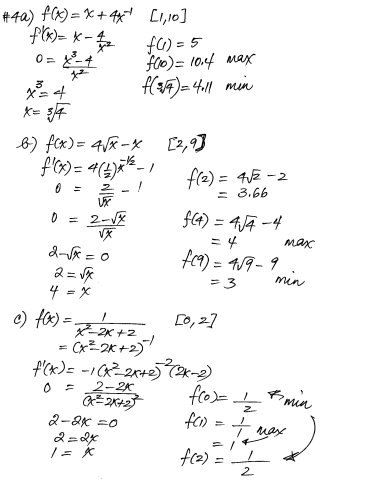 #4a) f(x) = x + 4x⁻¹ [1,10]
f'(x) = x - 4/x²
0 = (x³-4)/x²
x³ = 4
x = ∛4
f(1) = 5
f(10) = 10.4 max
f(∛4) = 4.11 min
b) f(x) = 4√x - x [2,9]
f'(x) = 4(1/2)x^(-1/2) - 1
0 = 2/√x - 1
0 = (2-√x)/√x
2-√x = 0
2 = √x
4 = x
f(2) = 4√2 - 2
= 3.66
f(4) = 4√4 - 4
= 4 max
f(9) = 4√9 - 9
= 3 min
c) f(x) = 1/(x²-2x+2) [0,2]
= (x²-2x+2)⁻¹
f'(x) = -1(x²-2x+2)⁻²(2x-2)
0 = (2-2x)/(x²-2x+2)²
2-2x = 0
2 = 2x
1 = x
f(0) = 1/2 min
f(1) = 1/1 max
= 1
f(2) = 1/2